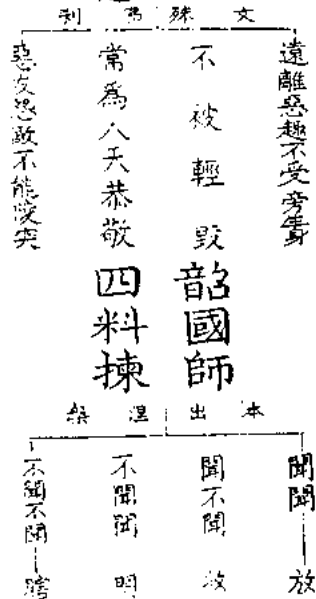 文殊利
遠離惡趣不受旁生身
不被輕毀
常為人天恭敬
惡友怨敵不能陵突
韶國師
四料揀
本出涅槃
聞聞——放
聞不聞 收
不聞聞 明
不聞不聞——瞎